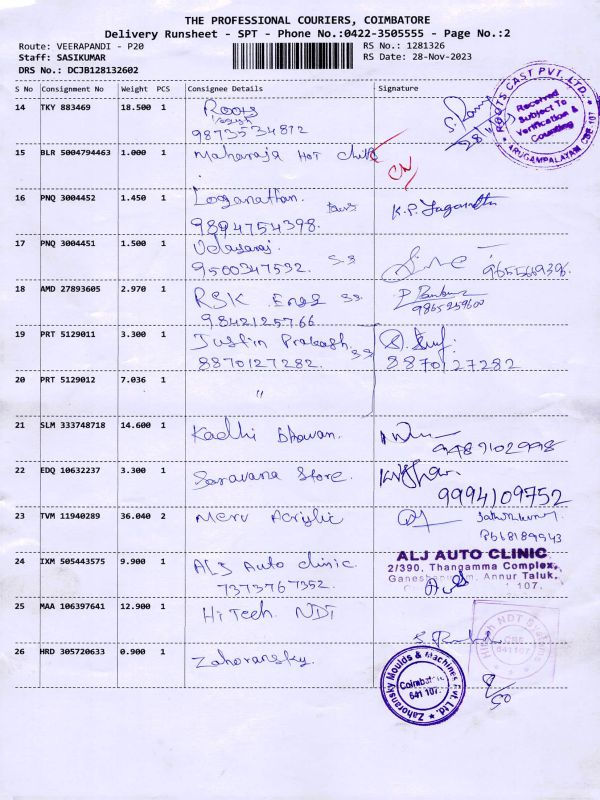 THE PROFESSIONAL COURIERS, COIMBATORE
Delivery Runsheet - SPT - Phone No.:0422-3505555 - Page No.:2
Route: VEERAPANDI - P20
Staff: SASIKUMAR
DRS No.: DCJB128132602
RS No.: 1281326
RS Date: 28-Nov-2023
S No Consignment No Weight PCS Consignee Details Signature
14 TKY 883469 18.500 1 Roots
9873534812
ROOTS CAST PVT. LTD.
Received
Subject To
Verification &
Counting
ARUGAMPALAYAM, CBE 107
15 BLR 5004794463 1.000 1 Maharaja Hot Chik
CN
16 PNQ 3004452 1.450 1 Loganathan.
9894754398.
K.P. Jaganathan
17 PNQ 3004451 1.500 1 Udayaraj.
9500347532. S.S
18 AMD 27893605 2.970 1 RSK Engg SS.
9842125766
9865259600
19 PRT 5129011 3.300 1 Justin Prakash.
8870127282. SS
8870127282
20 PRT 5129012 7.036 1 "
21 SLM 333748718 14.600 1 Kadhi Bhavan.
22 EDQ 10632237 3.300 1 Saravana Store.
9994109752
23 TVM 11940289 36.040 2 Meru Acrylic
24 IXM 505443575 9.900 1 ALJ Auto clinic.
7373767352.
ALJ AUTO CLINIC
2/390, Thangamma Complex,
Annur Taluk,
107.
25 MAA 106397641 12.900 1 HiTech. NDT
Hitech NDT
CBE
641107
26 HRD 305720633 0.900 1 Zahoransky.
Zahoransky Moulds & Machines Pvt. Ltd.
Coimbatore
641 107.